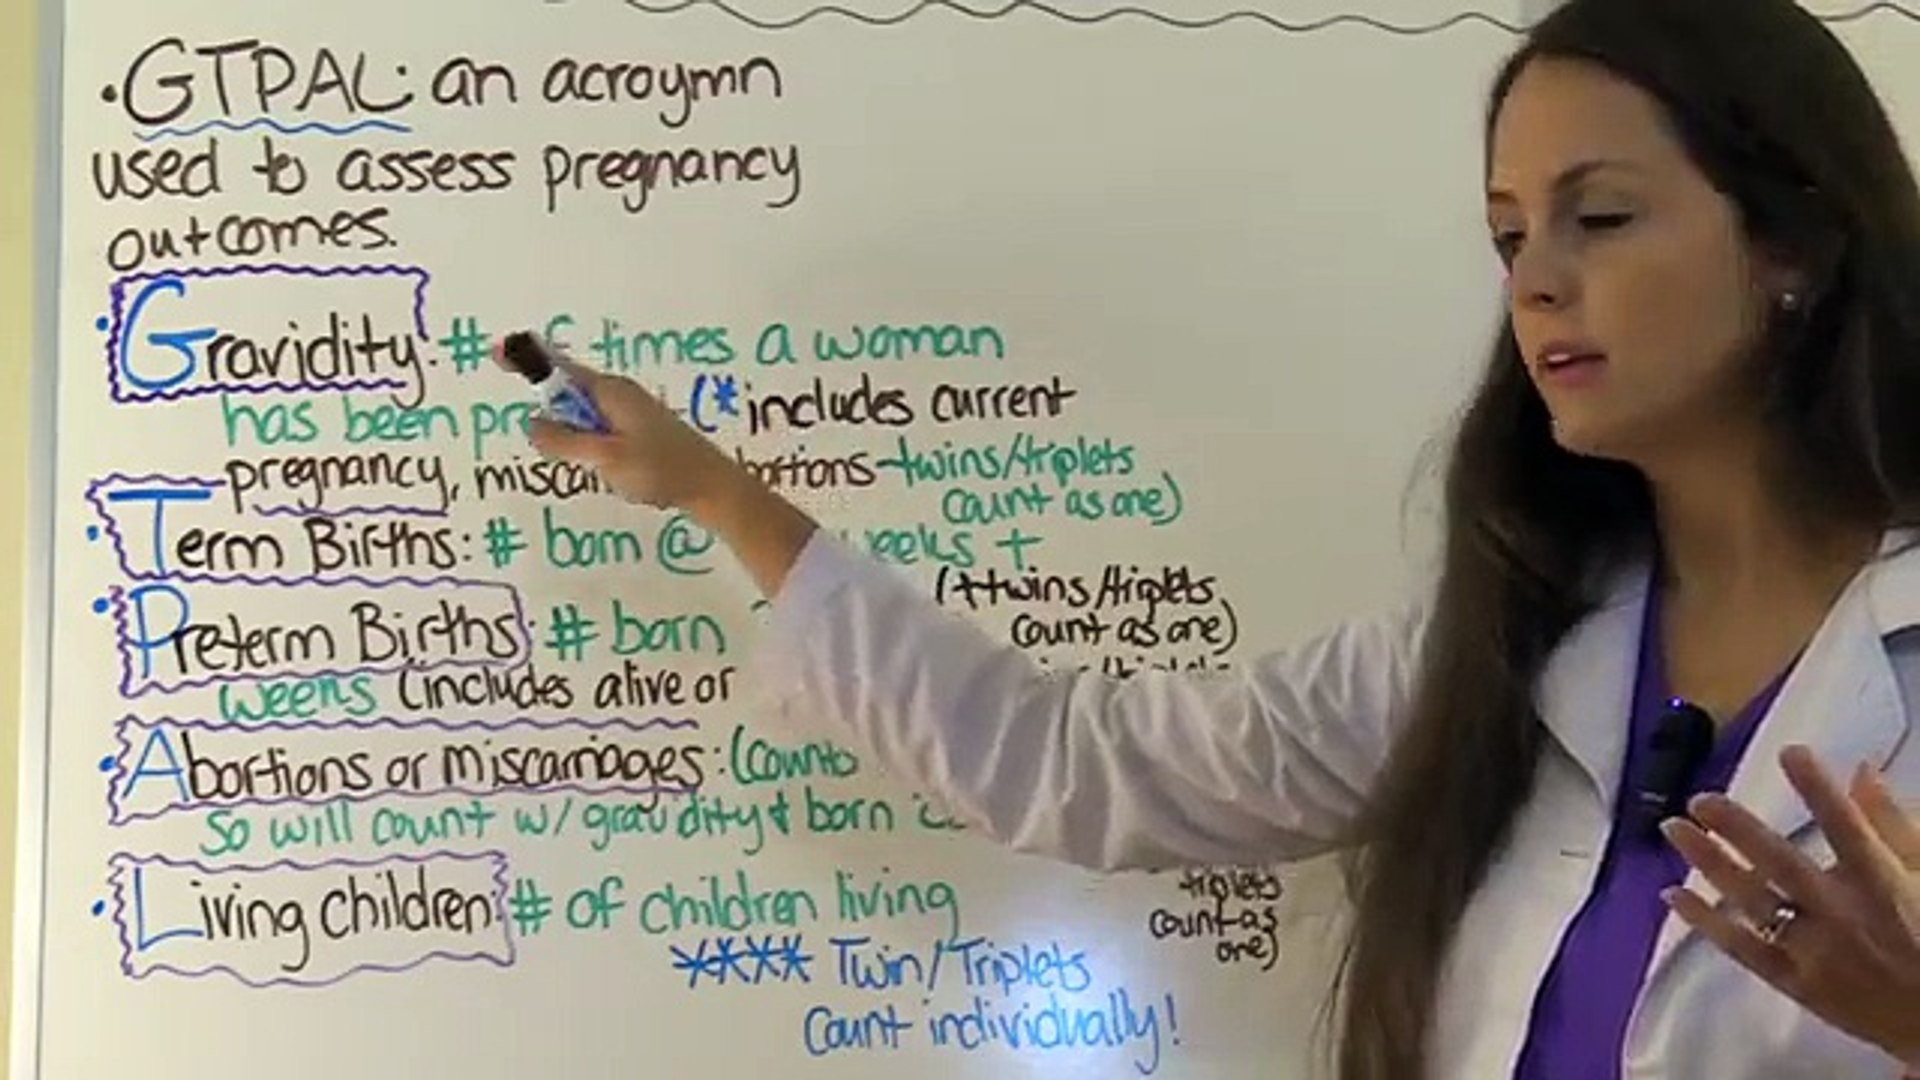 • GTPAL: an acroymn
used to assess pregnancy
outcomes.
• Gravidity: # of times a woman
has been (*includes current
pregnancy, -twins/triplets
count as one)
• Term Births: # born @ weeks +
(++twins/triplets
count as one)
• Preterm Births: # born
weeks (includes alive or
• Abortions or miscarriages: (counts
So will count w/ gravidity & born
• Living children: # of children living
triplets
count as
one)
**** Twin/Triplets
Count individually!